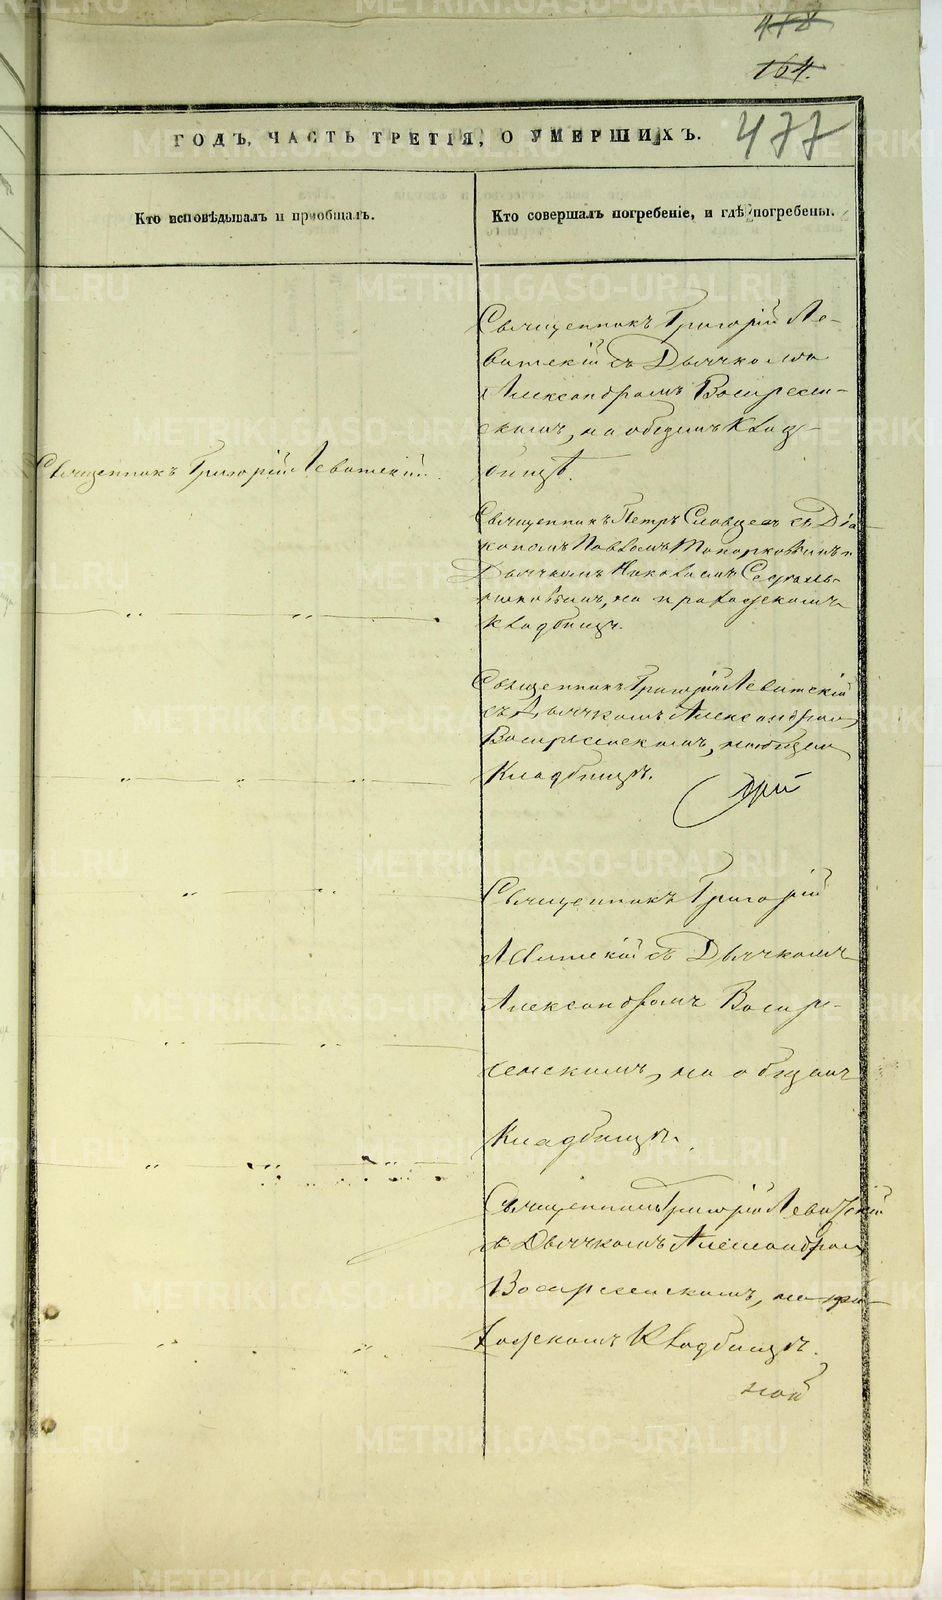 418
164.
477
ГОДЪ, ЧАСТЬ ТРЕТІЯ, О УМЕРШИХЪ.
Кто исповѣдывалъ и пріобщалъ.
Кто совершалъ погребеніе, и гдѣ погребены.
Священникъ Григорій Ле-
витскій съ Дьячкомъ
Александромъ Воскресен-
скимъ, на общемъ Клад-
бищѣ.
Священникъ Григорій Левитскій.
Священникъ Петръ Словцевъ съ Діа-
кономъ Павломъ Топорковымъ и
Дьячкомъ Николаемъ
на приходскомъ
Кладбищѣ.
Священникъ Григорій Левитскій
съ Дьячкомъ Александромъ
Воскресенскимъ, на общемъ
Кладбищѣ.
Священникъ Григорій
Левитскій съ Дьячкомъ
Александромъ Воскре-
сенскимъ, на общемъ
Кладбищѣ.
Священникъ Григорій Левитскій
съ Дьячкомъ Александромъ
Воскресенскимъ, на при-
ходскомъ Кладбищѣ.
ной
METRIKI.GASO-URAL.RU